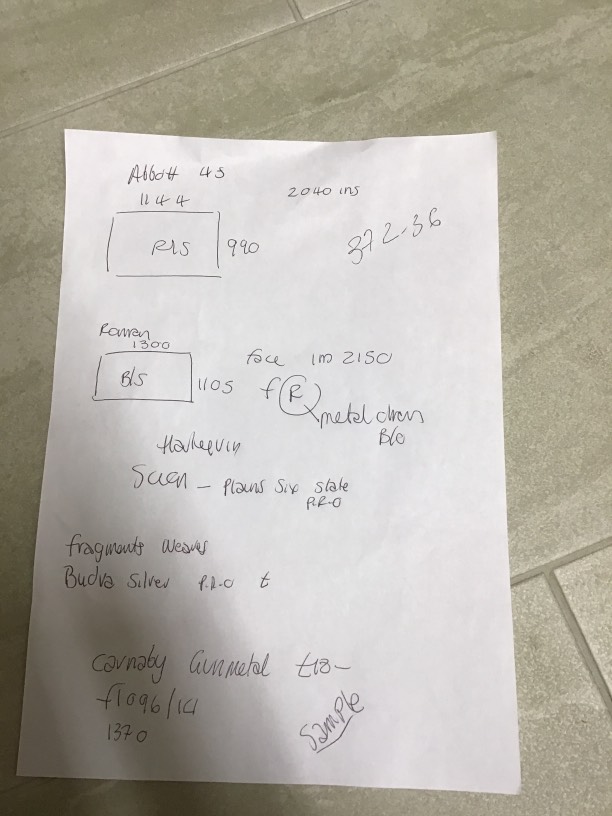 Abbott 45
1144
2040 ins
372.36
990
1300
B/S
1105
face
im 2150
f R
metal
B/O
Harlequin
- Plains Six Slate
P.R-O
fragments Weaves
Budva Silver P.R-O t
Carnaby Gunmetal £18-
1370
Sample